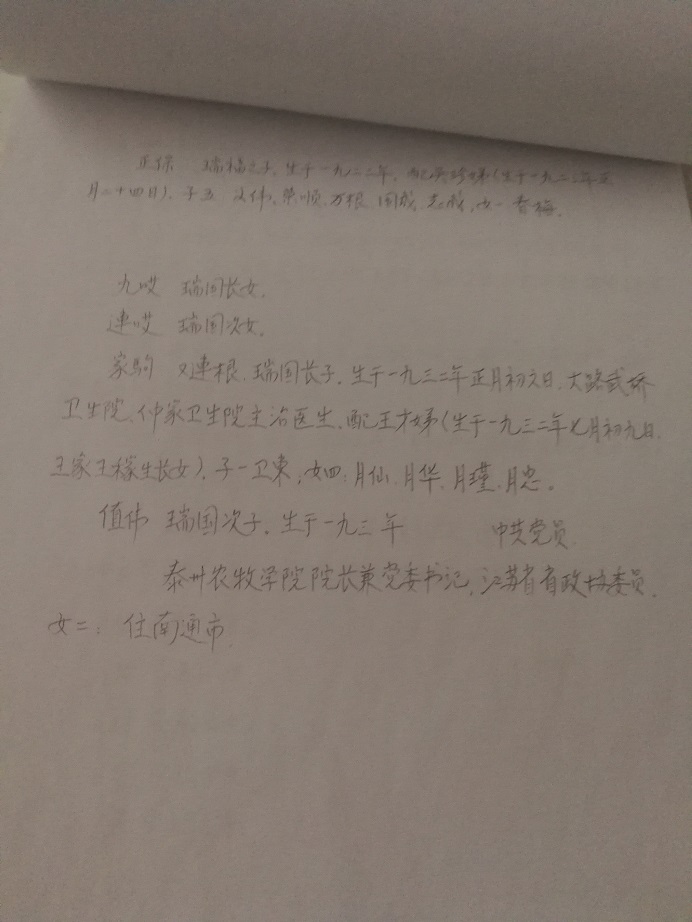 正保 瑞福之子,生于一九二二年,配 珍娣(生于一九二 年正
月二十四日),子五 文伟,荣顺,万根 国成,志成,女一 香梅,
九哎 瑞国长女,
連哎 瑞国次女,
家驹 又連根,瑞国长子,生于一九三二年正月初六日,大路武桥
卫生院,仲家卫生院主治医生,配王才娣(生于一九三二年七月初九日,
王家王稼生长女),子一卫東,女四:月仙、月华、月瑾、月忠。
值伟 瑞国次子,生于一九三 年 中共党员
泰州农牧学院院长兼党委书记,江苏省省政协委员.
女二:住南通市